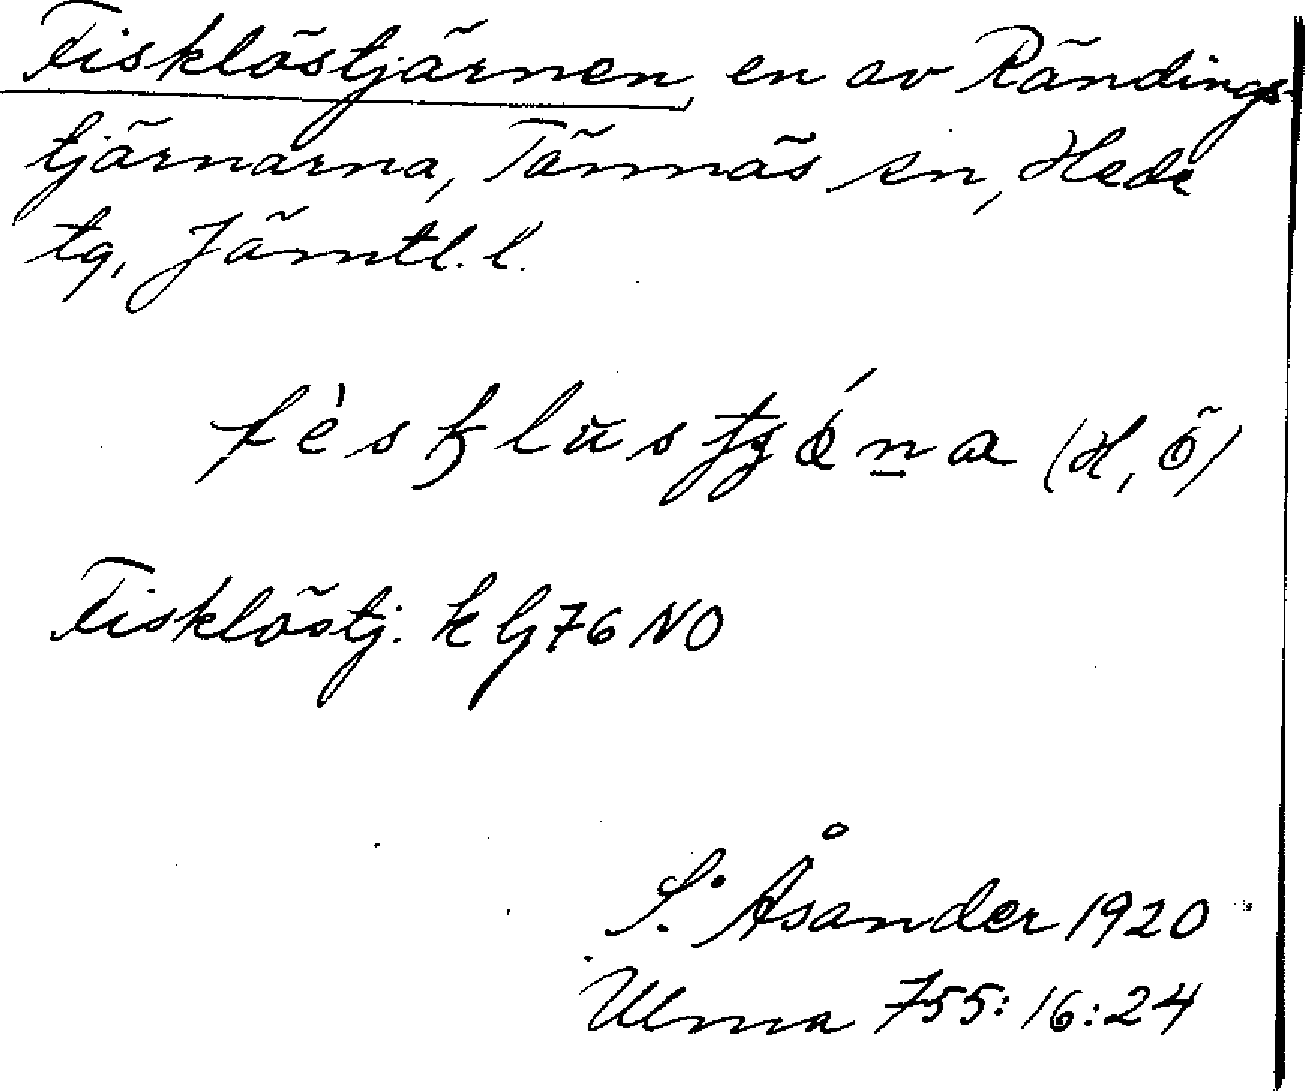 Fisklöstjärnen, en av Rändings-
tjärnarna, Tännäs sn, Hede
tg, Jämtl. l.
(H, Ö)
Fisklöstj. k bj 76 NO
S. Åsander 1920
Ulma 755:16:24